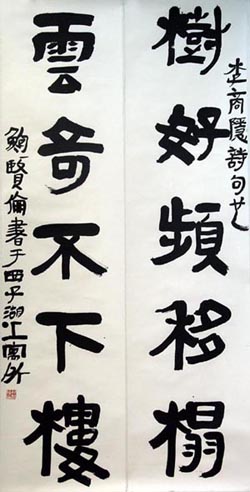 李商隱詩句也
樹好頻移榻
雲奇不下樓
鮑賢倫書于西子湖上寓所